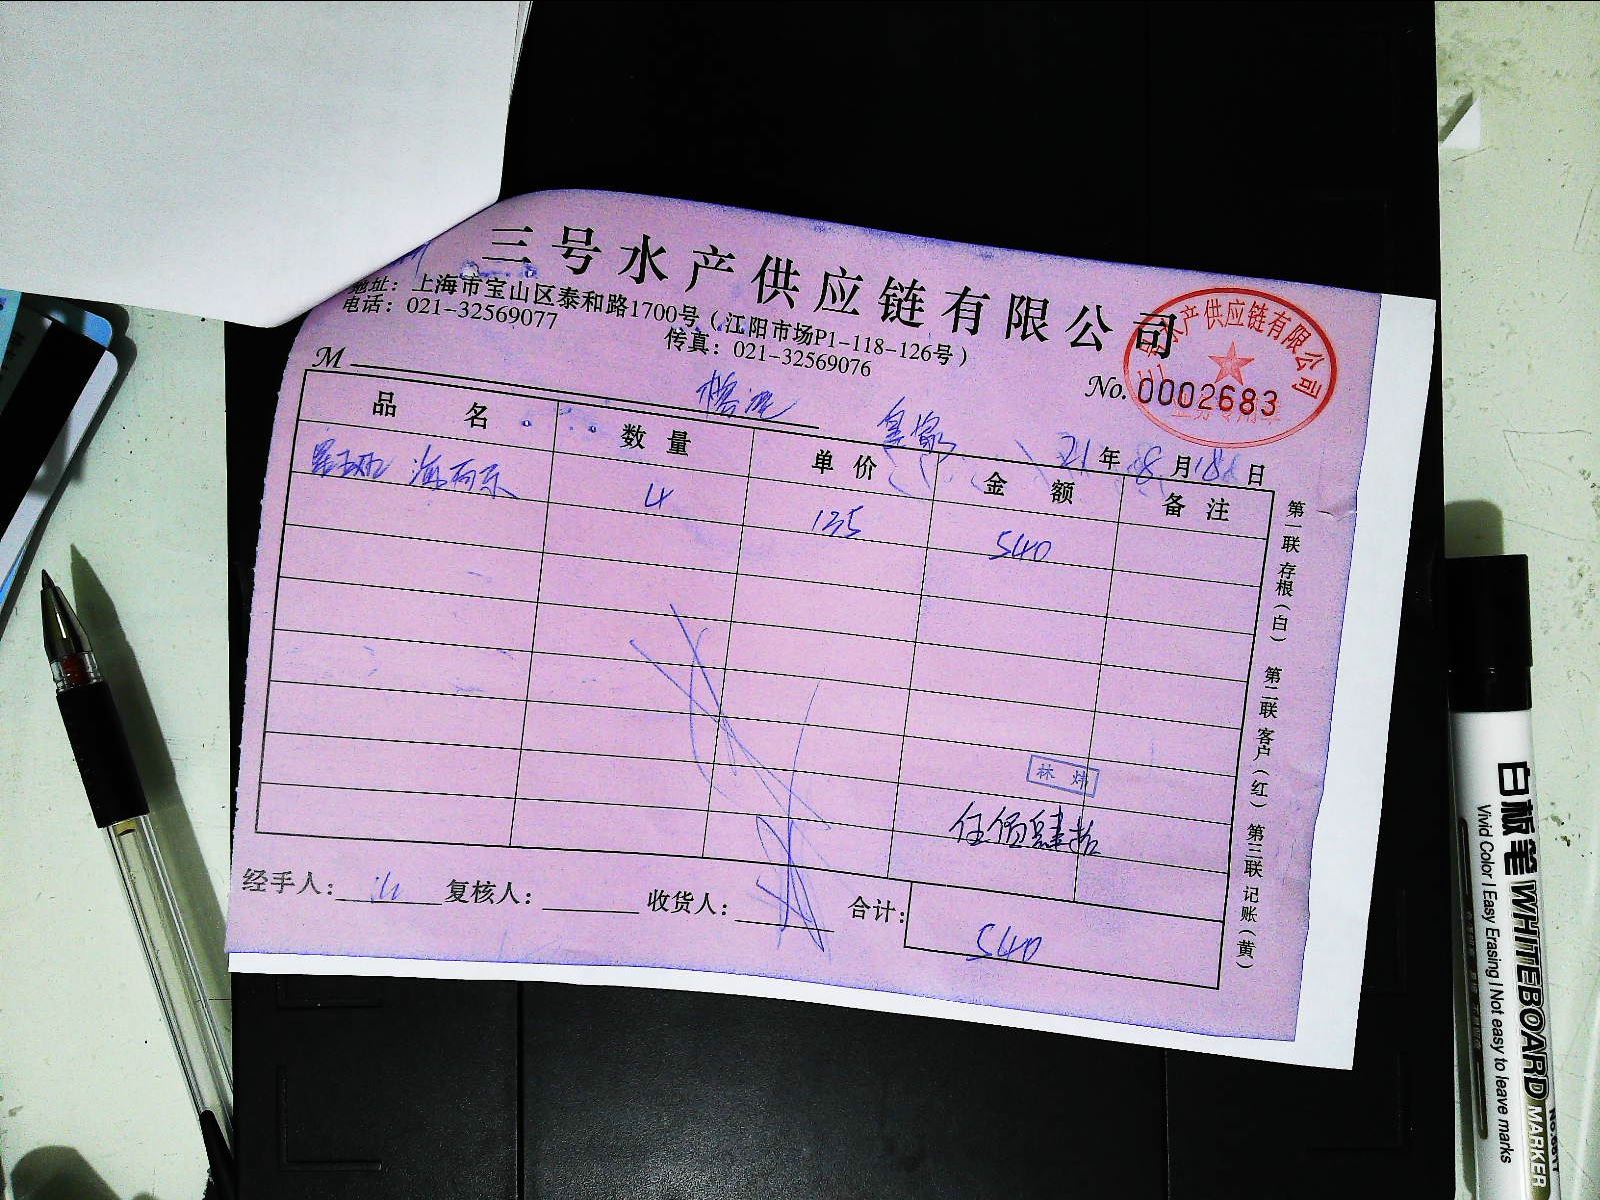 三号水产供应链有限公司
地址：上海市宝山区泰和路1700号（江阳市场P1-118-126号）
电话：021-32569077 传真：021-32569076
三号水产供应链有限公司
M No. 0002683
21年8月18日
品名 数量 单价 金额 备注
4 135 540
林炜
伍佰肆拾
经手人： 复核人： 收货人： 合计： 540
第一联 存根（白） 第二联 客户（红） 第三联 记账（黄）
白板笔 WHITEBOARD MARKER
Vivid Color | Easy Erasing | Not easy to leave marks